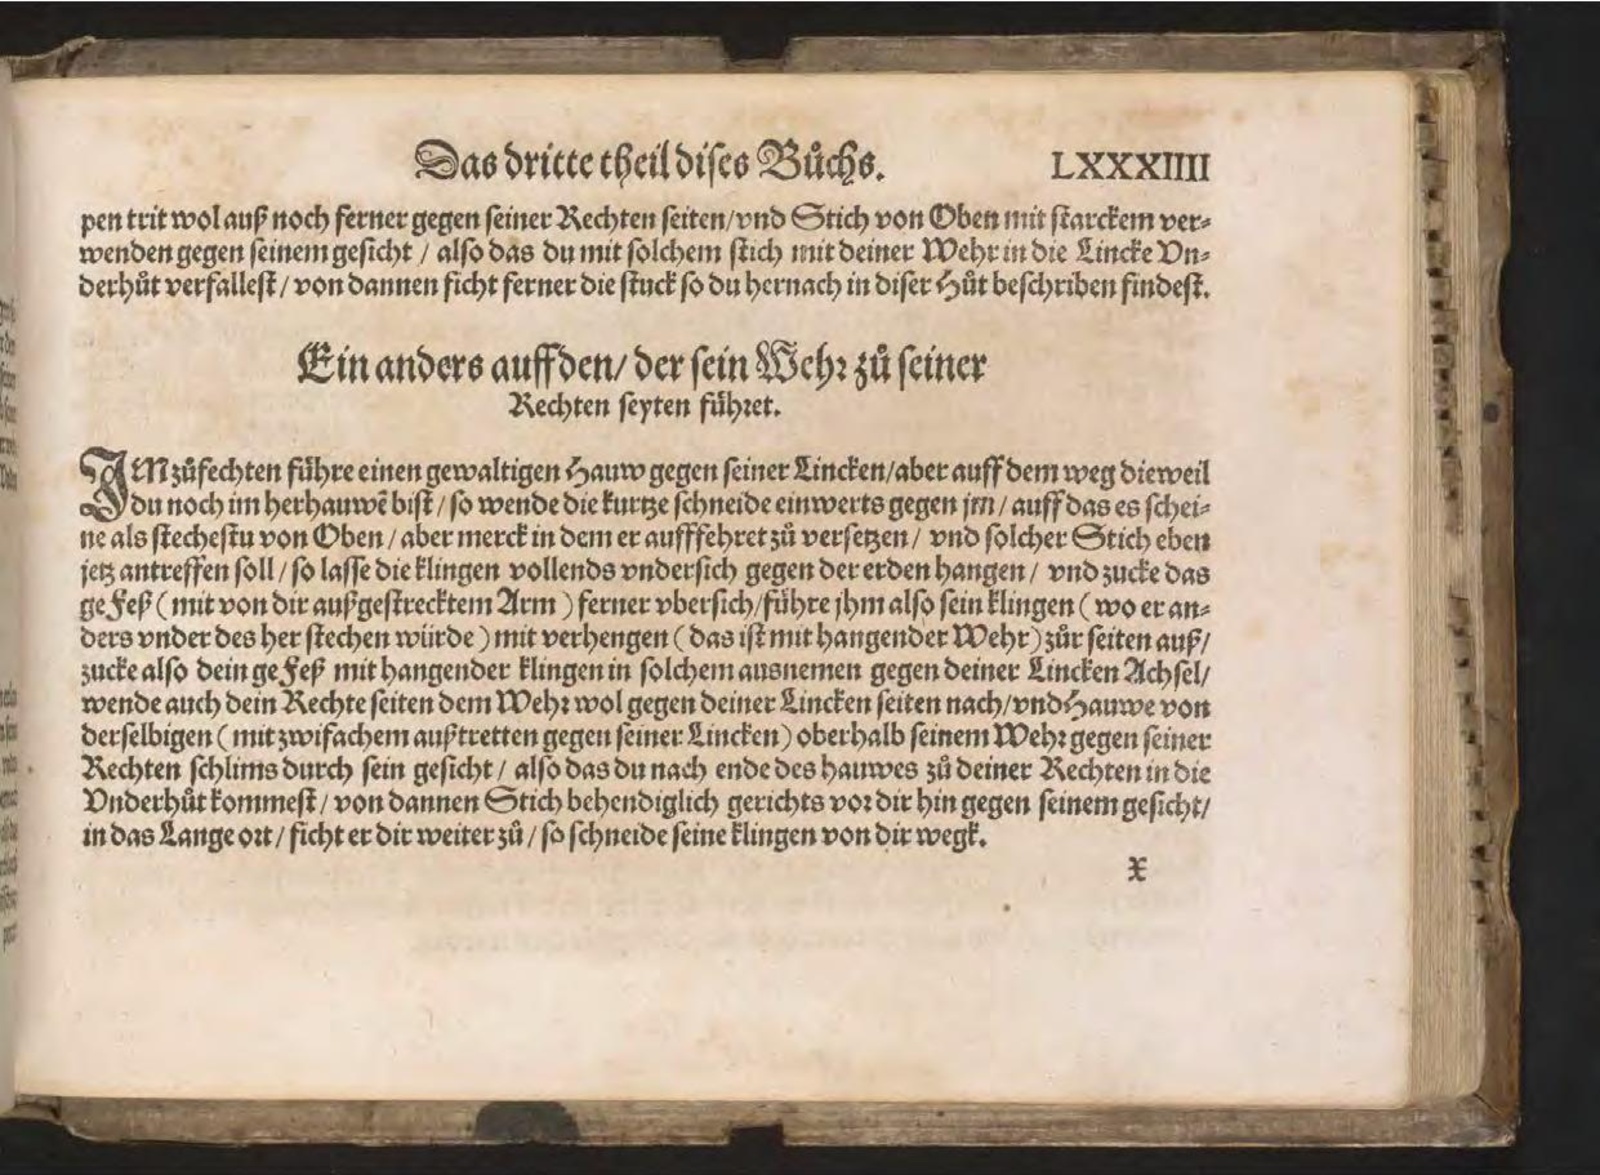 Das dritte theil dises Bůchs. LXXXIIII
pen trit wol auß noch ferner gegen seiner Rechten seiten/vnd Stich von Oben mit starckem ver-
wenden gegen seinem gesicht / also das du mit solchem stich mit deiner Wehr in die Lincke Vn-
derhůt verfallest / von dannen ficht ferner die stuck so du hernach in diser Hůt beschriben findest.
Ein anders auff den/ der sein Wehr zů seiner
Rechten seyten führet.
IM zůfechten führe einen gewaltigen Hauw gegen seiner Lincken/aber auff dem weg dieweil
du noch im herhauwẽ bist / so wende die kurtze schneide einwerts gegen jm / auff das es schei-
ne als stechestu von Oben / aber merck in dem er aufffehret zů versetzen / vnd solcher Stich eben
jetz antreffen soll / so lasse die klingen vollends vndersich gegen der erden hangen / vnd zucke das
gefeß ( mit von dir außgestrecktem Arm ) ferner vbersich/führe jhm also sein klingen ( wo er an-
ders vnder des her stechen würde ) mit verhengen ( das ist mit hangender Wehr) zůr seiten auß/
zucke also dein gefeß mit hangender klingen in solchem ausnemen gegen deiner Lincken Achsel/
wende auch dein Rechte seiten dem Wehr wol gegen deiner Lincken seiten nach/vnd Hauwe von
derselbigen ( mit zwifachem außtretten gegen seiner Lincken) oberhalb seinem Wehr gegen seiner
Rechten schlims durch sein gesicht / also das du nach ende des hauwes zů deiner Rechten in die
Vnderhůt kommest / von dannen Stich behendiglich gerichts vor dir hin gegen seinem gesicht/
in das Lange ort / ficht er dir weiter zů / so schneide seine klingen von dir wegk.
X